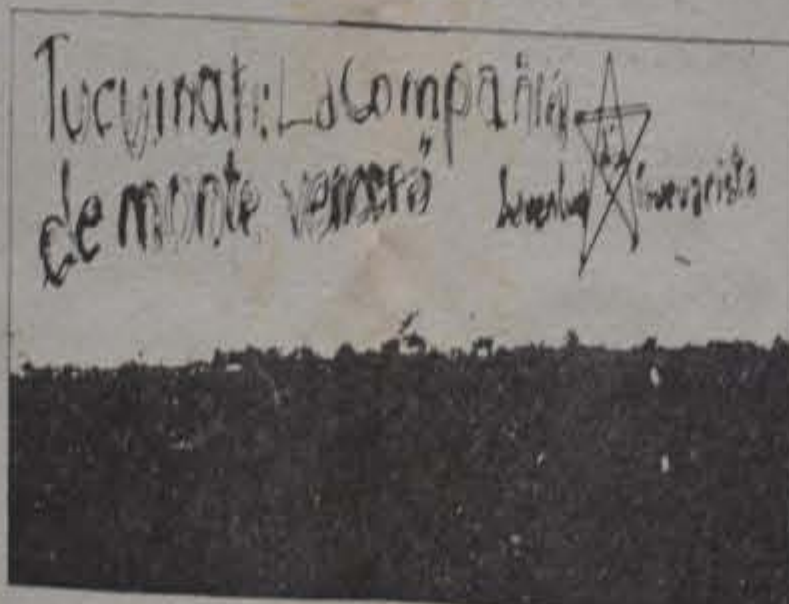 Tucuman: La Compañia
de monte vencera" Juventud Guevarista